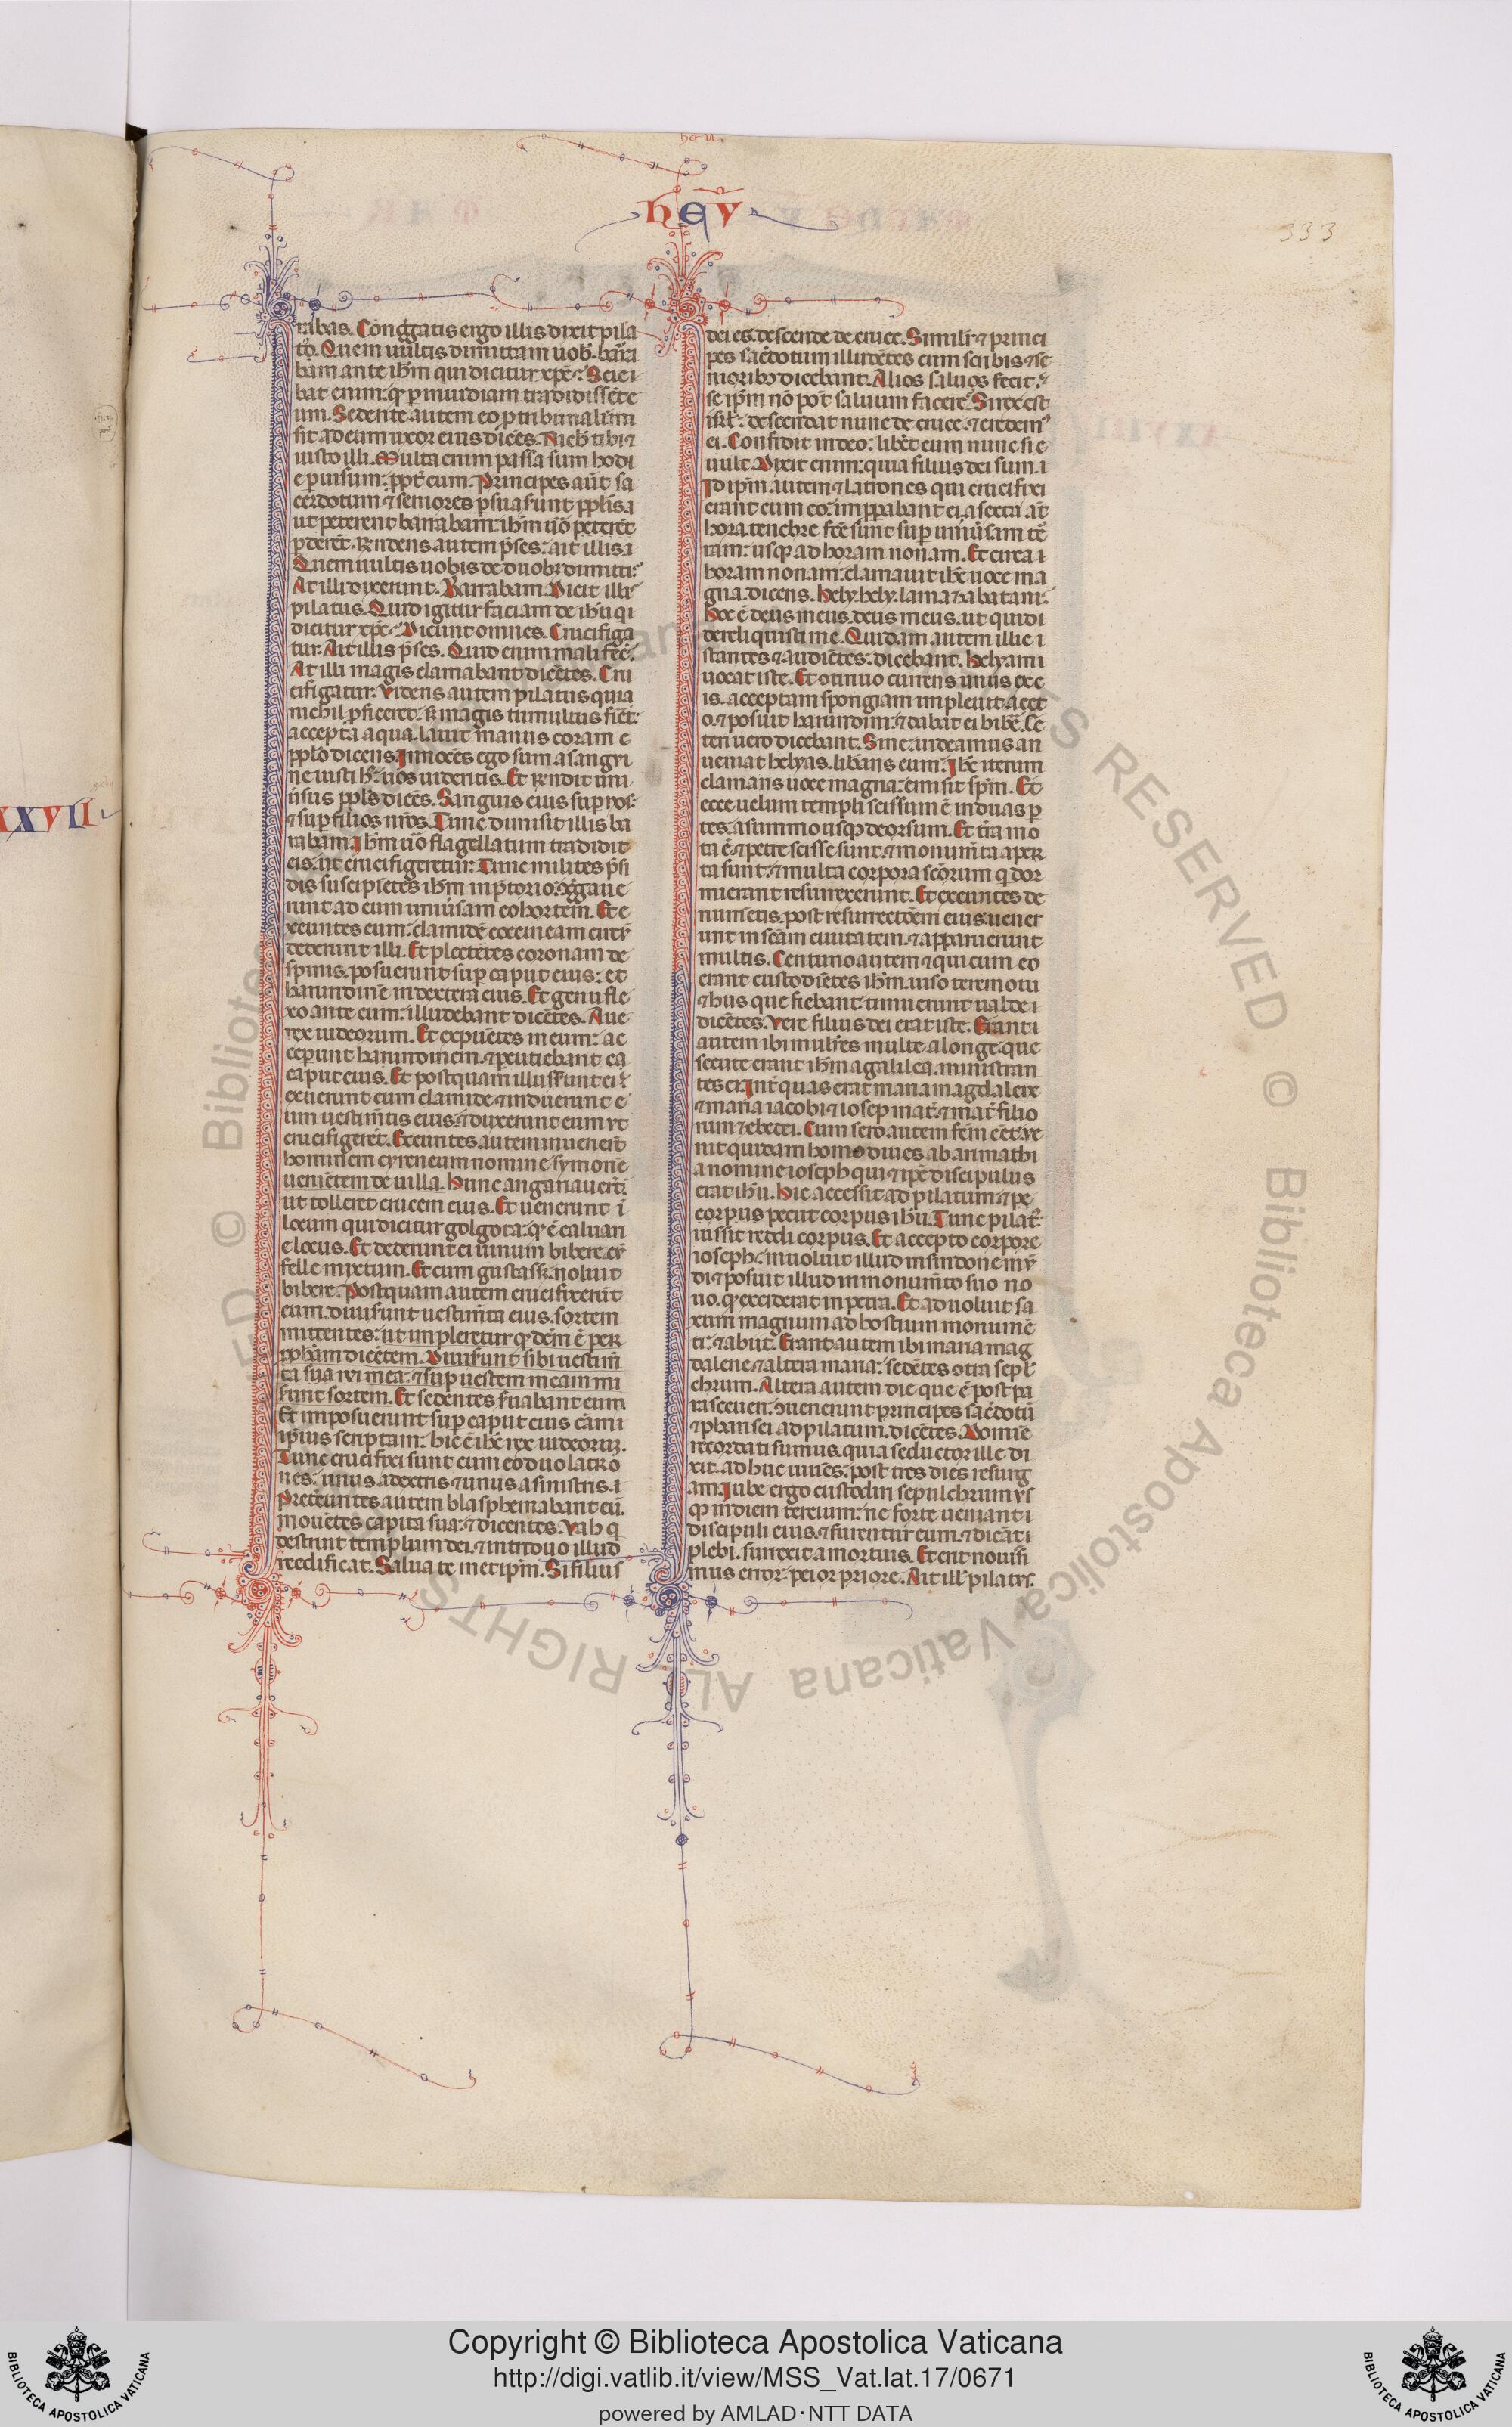 hou.
heu
333
XXVII
rabas. Congͣgatis ergo illis dixit pila
to. Quem uultis dimittam uob̾. barra
bam an te ih̄m qui dicitur xp̄c? Scie i
bat enim: qꝫ ꝑ inuidiam tradidissēt e
um. Sedente autem eo ꝓ tribunali: mi
sit ad eum uxor eius dicēs. Nich̾ tibi ⁊
iusto illi. Multa enim passa sum hodi
e ꝑ uisum: ꝓpt̾ eum. Principes aūt sa
cerdotum ⁊ seniores ꝑsuaserunt ppl̾is
ut peterent barrabam: ih̄m ūo
ꝑderēt. Rn̄dens autem p̄ses: ait illis
Quem uultis uobis de duobꝫ dimitti?
At illi dixerunt. Barrabam. Dicit illis
pilatus. Quid igitur faciam de ih̄u qi
dicitur xp̄c? Dicunt omnes. Crucifiga
tur. Ait illis p̄ses. Quid enim mali fec̄.
At illi magis clamabant dicētes. Cru
cifigatur. Videns autem pilatus quia
nichil ꝓficeret: sꝫ magis tumultus fiēt:
accepta aqua. lauit manus coram
pplō dicens. Innocēs ego sum a sangui
ne iusti h̾: uos uideritis. Et rn̄dit uni
ūsus ppl̄s dicēs. Sanguis eius sup nos:
⁊ sup filios nr̄os. Tunc dimisit illis ba
rabam. Ih̄m ūo flagellatum tradidit
eis. ut crucifigeretur. Tunc milites p̄si
dis suscipientes ih̄m in p̄torio: ꝯgͣgaue
runt ad eum uniūsam cohortem. Et e
xeuntes eum: clamidē coccineam circū
dederunt illi. Et plectētes coronam de
spinis. posuerunt sup caput eius: et
harundinē in dextera eius. Et genu fle
xo ante eum: illudebant dicētes. Aue
rex iudeorum. Et expuētes in eum: ac
ceperunt harundinem. ⁊ ꝑcutiebant
caput eius. Et postquam illuserunt ei:
exuerunt eum clamide ⁊ induerunt e
um uestim̄tis eius. ⁊ duxerunt eum ut
crucifigerēt. Exeuntes autem inuenerūt
hominem cyreneum nomine symonē
ueniētem de uilla. Hunc angariauerūt
ut tolleret crucem eius. Et uenerunt ī
locum qui dicitur golgota: qꝫ ē caluari
e locus. Et dederunt ei uinum bibere cū
felle mixtum. Et cum gustasset: noluit
bibere. Postquam autem crucifixerūt
eum. diuiserunt uestim̄ta eius. sortem
mittentes: ut impleretur qꝫ dcm̄ ē per
ꝓph̄am dicētem. Diuiserunt sibi uestim̄
ta sua mea: ⁊ sup uestem meam mi
serunt sortem. Et sedentes s̾uabant eum.
Et imposuerunt sup caput eius cām
ip̄ius scriptam: hic ē ih̄c rex iudeorum.
Tunc crucifixi sunt cum eo duo latro
nes: unus a dextris ⁊ unus a sinistris.
Pretereuntes autem blasphemabant eū.
mouētes capita sua: ⁊ dicentes. Vah q
destruit templum dei. ⁊ in triduo illud
reedificat. Salua te metip̄m. Si filius
dei es. descende de cruce. Similr̄ ⁊ princi
pes sac̄dotum illudētes cum scribis ⁊ se
nioribꝫ dicebant. Alios saluos fecit:
se ip̄m nō pōt saluum facere. Si rex est
isrl̄: descendat nunc de cruce. ⁊ credem̾
ei. Confidit in deo: liberet eum nunc si
uult. Dixit enim: quia filius dei sum.
Id ip̄m autem ⁊ latrones qui crucifixi
erant cum eo: imꝓpabant ei. a sexta at̄
hora. tenebre fc̄e sunt sup uniūsam ter
ram: usqꝫ ad horam nonam. Et circa
horam nonam: clamauit ih̄c uoce ma
gna. dicens. Hely. hely. lamazabatani:
Hoc ē deus meus. deus meus. ut quid
dereliquisti me. Quidam autem illic
stantes ⁊ audiētes: dicebant. Helyam
uocat iste. Et ꝯtinuo currens unus ex e
is. acceptam spongiam impleuit acet
o. ⁊ posuit harundini: ⁊ dabat ei bibē. Ce
teri uero dicebant. Sine: uideamus an
ueniat helyas. liberans eum. Ih̄c iterum
clamans uoce magna: emisit sp̄m. Et
ecce uelum templi scissum ē in duas ꝑ
tes. a summo usqꝫ deorsum. Et t̄ra mo
ta ē. ⁊ petre scisse sunt. ⁊ monum̄ta aper
ta sunt: ⁊ multa corpora sc̄orum q dor
mierant resurrexerunt. Et exeuntes de
num̄etis. post resurrectōem eius. uener
unt in sc̄am ciuitatem. ⁊ apparuerunt
multis. Centurio autem ⁊ qui cum eo
erant custodientes ih̄m. uiso terremotu
⁊ hiis que fiebant: timuerunt ualde
dicētes. Vere filius dei erat iste. Erant
autem ibi mulieres multe a longe. que
secute erant ih̄m a galilea. ministran
tes ei. Int̾ quas erat maria magdalene
⁊ maria iacobi ⁊ iosep mat̾. ⁊ mat̾ filio
rum zebedei. Cum sero autem fc̄m eēt. ue
nit quidam homo diues ab arimathi
a nomine ioseph qui ⁊ ip̄e discipulus
erat ih̄u. Hic accessit ad pilatum ⁊ pe
corpus peciit corpus ih̄u. Tunc pilat̾
iussit reddi corpus. Et accepto corpore
ioseph: inuoluit illud in sindone mū
di ⁊ posuit illud in monum̄to suo no
uo. qꝫ exciderat in petra. Et aduoluit sa
xum magnum ad hostium monumē
ti: ⁊ abiit. Erant autem ibi maria mag
dalene ⁊ altera maria: sedētes ꝯtra sepl̾
chrum. Altera autem die que ē post pa
rasceuen. ꝯuenerunt principes sac̄dotū
⁊ pharisei ad pilatum. dicētes. Domine
recordati sumus. quia seductor ille di
xit. adhuc uiuēs: post tres dies resurg
am. Iube ergo custodiri sepulchrum us
qꝫ in diem tercium: ne forte ueniant
discipuli eius. ⁊ furentur eum. ⁊ dicāt
plebi. surrexit a mortuis. Et erit nouissi
mus error peior priore. Ait ill̾ pilatus.
© Biblioteca Apostolica Vaticana ALL RIGHTS RESERVED
Copyright © Biblioteca Apostolica Vaticana
http://digi.vatlib.it/view/MSS_Vat.lat.17/0671
powered by AMLAD·NTT DATA
BIBLIOTECA APOSTOLICA VATICANA
BIBLIOTECA APOSTOLICA VATICANA